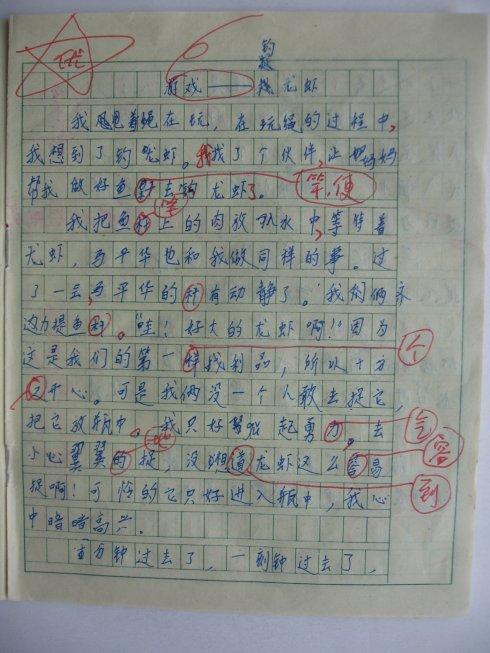 优
钓
游戏——龙虾
我思见着绳在玩，在玩绳的过程中，
我想到了钓龙虾。我找了个伙伴，让妈妈
帮我做好鱼去钓龙虾了。竿，便
竿
我把鱼上的肉放入水中，等待着
龙虾，马平华也和我做同样的事。过
了一会，马平华的有动静了。我们俩永
力提鱼。"哇！好大的龙虾啊！"因为
这是我们的第一样找利品，所以十方
开心。可是我俩没一个人敢去捉它，个
把它放瓶中。我只好鼓起勇力。去气
地
小心翼翼的捉，没想道龙虾这么容易容
捉啊！可怜的它只好进入瓶中，我心到
中暗暗高兴。
五分钟过去了，一刻钟过去了，